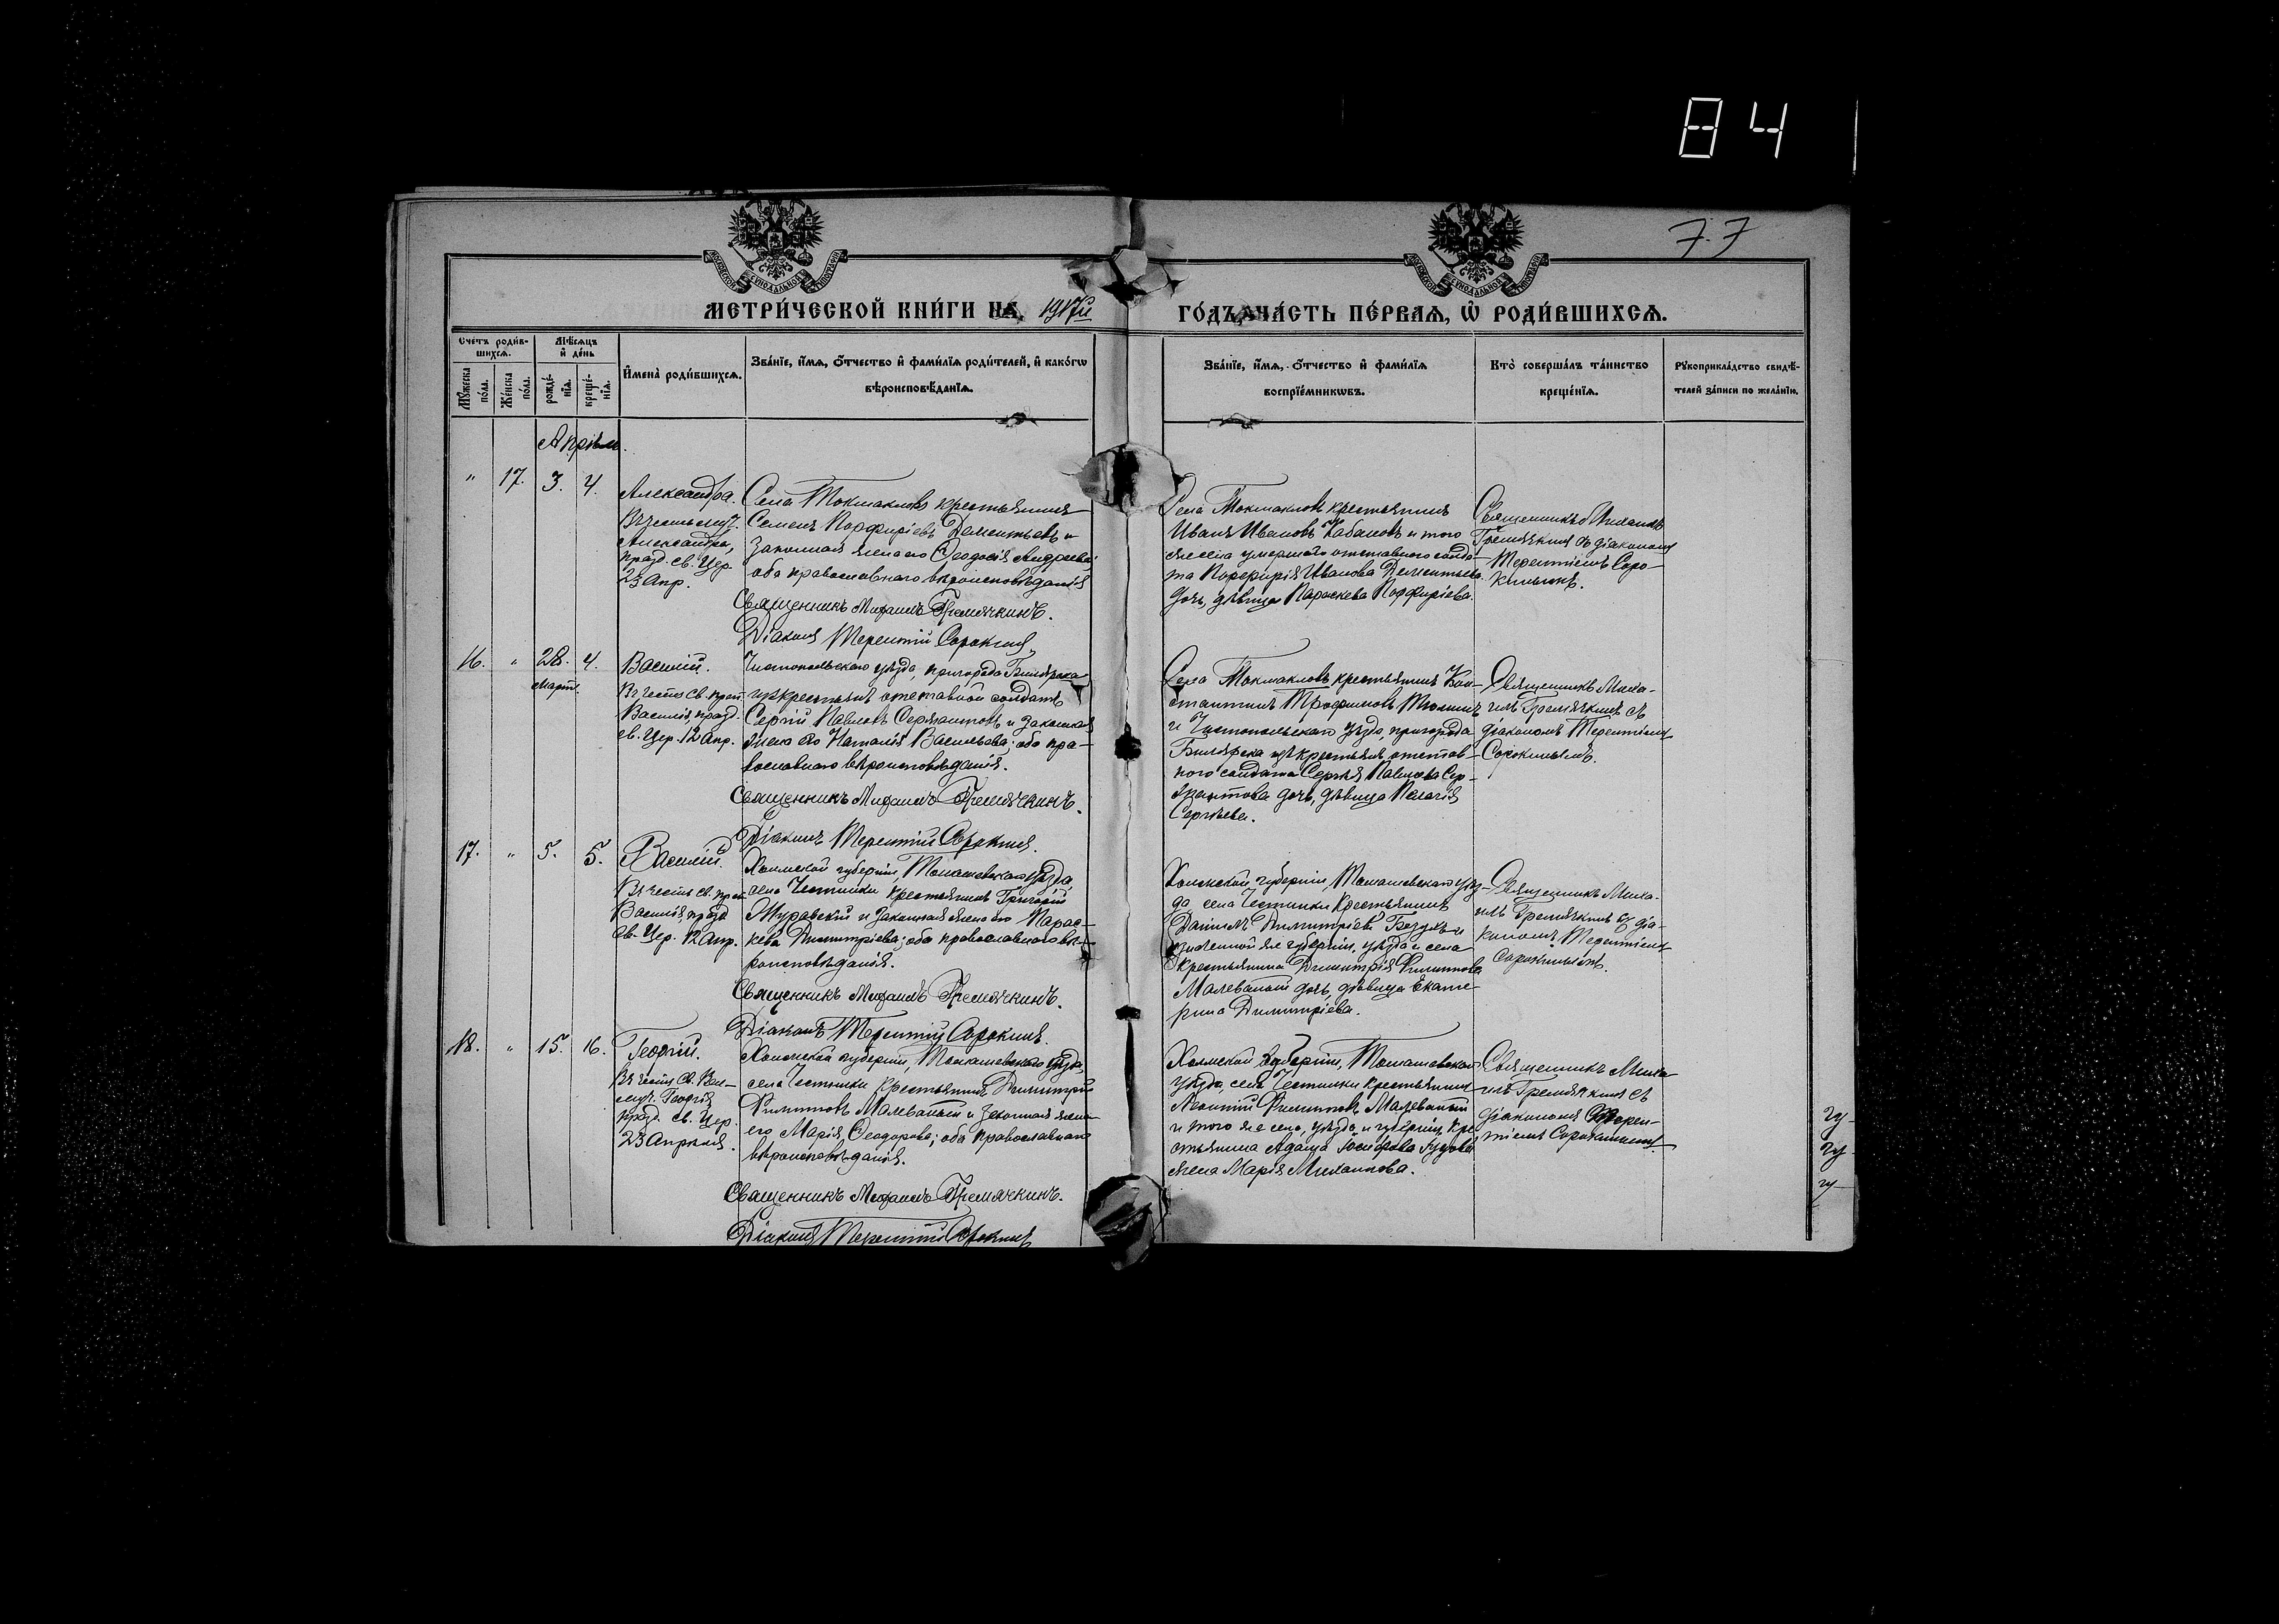 84
77
МЕТРИ́ЧЕСКОЙ КНИ́ГИ НА̀ 1917й
ГО́ДЪ, ЧА́СТЬ ПЕ́РВАѦ, Ѡ҆ РОДИ́ВШИХСѦ.
Сче́тъ роди́в-
шихсѧ.
Мꙋ́жеска по́ла.
Же́нска по́ла.
Мѣ́сѧцъ и҆ де́нь
рожде́-
нїѧ.
креще́-
нїѧ.
И҆мена̀ роди́вшихсѧ.
Зва́нїе, и҆́мѧ, ѻ҆́тчество и҆ фами́лїѧ роди́телей, и҆ како́гѡ
вѣроисповѣ́данїѧ.
Зва́нїе, и҆́мѧ, ѻ҆́тчество и҆ фами́лїѧ
воспрїе́мникѡвъ.
Кто̀ соверша́лъ та́инство
креще́нїѧ.
Рꙋкоприкла́дство свидѣ́-
телей за́писи по жела́нїю.
Апрѣль.
" 17. 3. 4.
Александра.
Въ честь муч.
Александры,
празд. св. Цер.
23 Апр.
Села Токмаклов крестьянинъ
Семенъ Порфирiевъ Дементьевъ и
законная жена его Ѳеодосiя Андреева;
оба православнаго вѣроисповѣданiя
Священникъ Михаилъ Гремячкинъ.
Дiаконъ Терентiй Сорокинъ.
Села Токмаклов крестьянинъ
Иванъ Ивановъ Кабановъ и того
же села умершаго отставного солда-
та Порфирiя Иванова Дементьева
дочь, дѣвица Параскева Порфирiева.
Священникъ Михаилъ
Гремячкинъ съ дiакономъ
Терентiемъ Соро-
кинымъ.
16. " 28. 4.
Март.
Василiй.
Въ честь св. преп.
Василiя, празд.
св. Цер. 12 Апр.
Чистопольскаго уѣзда, пригорода Билярска
изъ крестьянъ отставной солдатъ
Сергiй Павловъ Сержантовъ и законная
жена его Наталiя Васильева; оба пра-
вославнаго вѣроисповѣданiя.
Священникъ Михаилъ Гремячкинъ.
Дiаконъ Терентiй Сорокинъ.
Села Токмаклов крестьянинъ Кон-
стантинъ Трофимовъ
и Чистопольскаго уѣзда, пригорода
Билярска изъ крестьянъ отстав-
ного солдата Сергѣя Павлова Сер-
жантова дочь, дѣвица Пелагiя
Сергѣева.
Священникъ Миха-
илъ Гремячкинъ съ
дiакономъ Терентiемъ
Сорокинымъ.
17. " 5. 5.
Василiй.
Въ честь св. преп.
Василiя, празд.
св. Цер. 12 Апр.
Холмской губернiи, Томашевскаго уѣзда,
села Честынки крестьянинъ Григорiй
Журавскiй и законная жена его Парас-
кева Димитрiева; оба православнаго вѣ-
роисповѣданiя.
Священникъ Михаилъ Гремячкинъ.
Дiаконъ Терентiй Сорокинъ.
Холмской губернiи, Томашевскаго уѣз-
да, села Честынки крестьянинъ
Данiилъ Димитрiевъ и
той же губернiи, уѣзда и села
крестьянина Димитрiя Филиппова
Малеваный дочь, дѣвица Екате-
рина Димитрiева.
Священникъ Миха-
илъ Гремячкинъ съ дiа-
кономъ Терентiемъ
Сорокинымъ.
18. " 15. 16.
Георгiй.
Въ честь св. Вел-
муч. Георгiя
празд. св. Цер.
23 Апрѣля.
Холмской губернiи, Томашевскаго уѣзда,
села Честынки крестьянинъ Димитрiй
Филипповъ Малеваный и законная жена
его Марiя Ѳеодорова; оба православнаго
вѣроисповѣданiя.
Священникъ Михаилъ Гремячкинъ.
Дiаконъ Терентiй Сорокинъ
Холмской губернiи, Томашевскаго
уѣзда, села Честынки крестьянинъ
Леонтiй Филипповъ Малеваный
и того же села, уѣзда и губернiи кре-
стьянина Адама Iосифова
жена Марiя Михаилова.
Священникъ Миха-
илъ Гремячкинъ съ
дiакономъ Терен-
тiемъ Сорокинымъ.